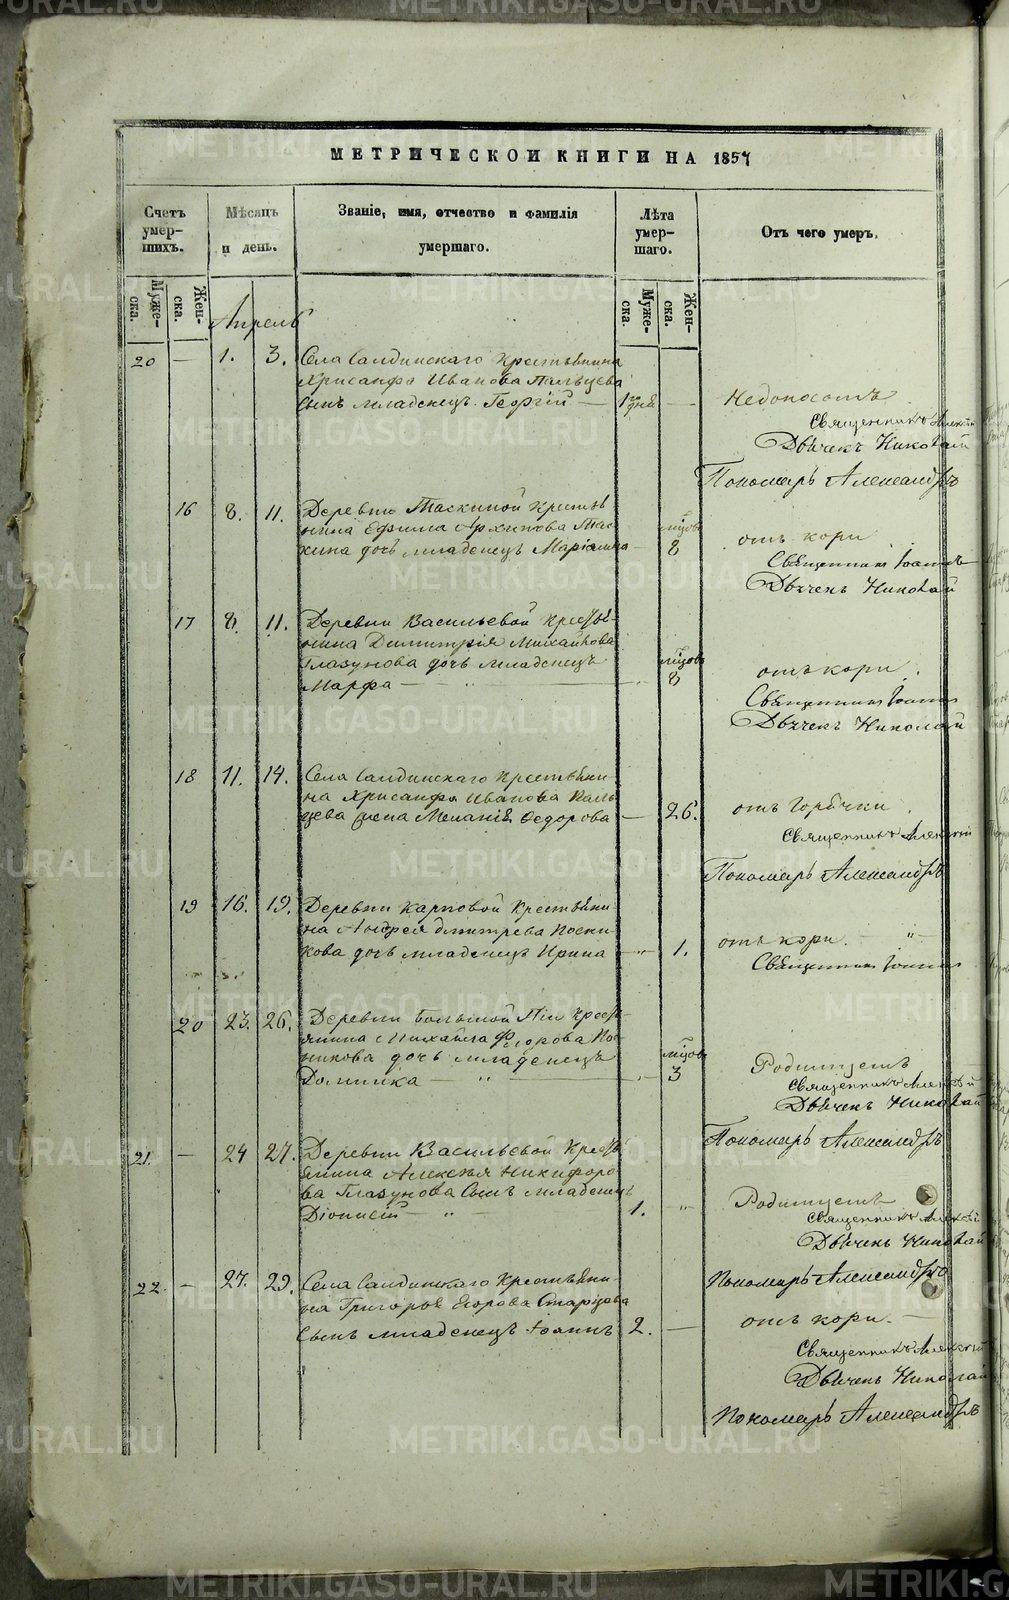 МЕТРИЧЕСКОЙ КНИГИ НА 1857
Счетъ умер-шихъ.
Мѣсяцъ и день.
Званіе, имя, отчество и фамилія умершаго.
Лѣта умер-шаго.
Отъ чего умеръ.
Муже-ска.
Жен-ска.
Муже-ска.
Жен-ска.
Апрель
20 — 1. 3. Села Салдинскаго Крестьянина
Хрисанфа Иванова Пальцева
сынъ младенецъ Георгій — дней —
Недоносокъ
Священникъ Алексій
Дьячекъ Николай
Пономарь Александръ
16 8. 11. Деревни Таскиной Крестья
нина Ефима Архипова Тас
кина дочь младенецъ Маріамна — мѣсцовъ 8
отъ кори
Священникъ Іоаннъ
Дьячекъ Николай
17 8. 11. Деревни Васильевой Кресть-
янина Димитрія Михайлова
Глазунова дочь младенецъ
Марфа — " — мѣсцовъ 8
отъ кори.
Священникъ Іоаннъ
Дьячекъ Николай
18 11. 14. Села Салдинскаго Крестьяни-
на Хрисанфа Иванова Паль
цева жена Меланія Федорова — 26.
отъ горячки.
Священникъ Алексій
Пономарь Александръ
19 16. 19. Деревни Карповой Крестьяни-
на Андрея Дмитрева Посни
кова дочь младенецъ Ирина — 1.
отъ кори. — " —
Священникъ Іоаннъ
20 23. 26. Деревни Большой Кресть-
янина Михайла Федорова Пос
никова дочь младенецъ
Домника — " — мѣсцовъ 3
Родимцемъ
Священникъ Алексій
Дьячекъ Николай
Пономарь Александръ
21. — 24 27. Деревни Васильевой Кресть
янина Алексѣя Никифоро
ва Глазунова сынъ младенецъ
Діонисій — " — 1. — " —
Родимцемъ
Священникъ Алексій
Дьячекъ Николай
Пономарь Александръ
22. — 27. 29. Села Салдинскаго Крестьяни-
на Григорья Егорова Старцова
сынъ младенецъ Іоаннъ 2. —
отъ кори. —
Священникъ Алексій
Дьячекъ Николай
Пономарь Александръ
METRIKI.GASO-URAL.RU